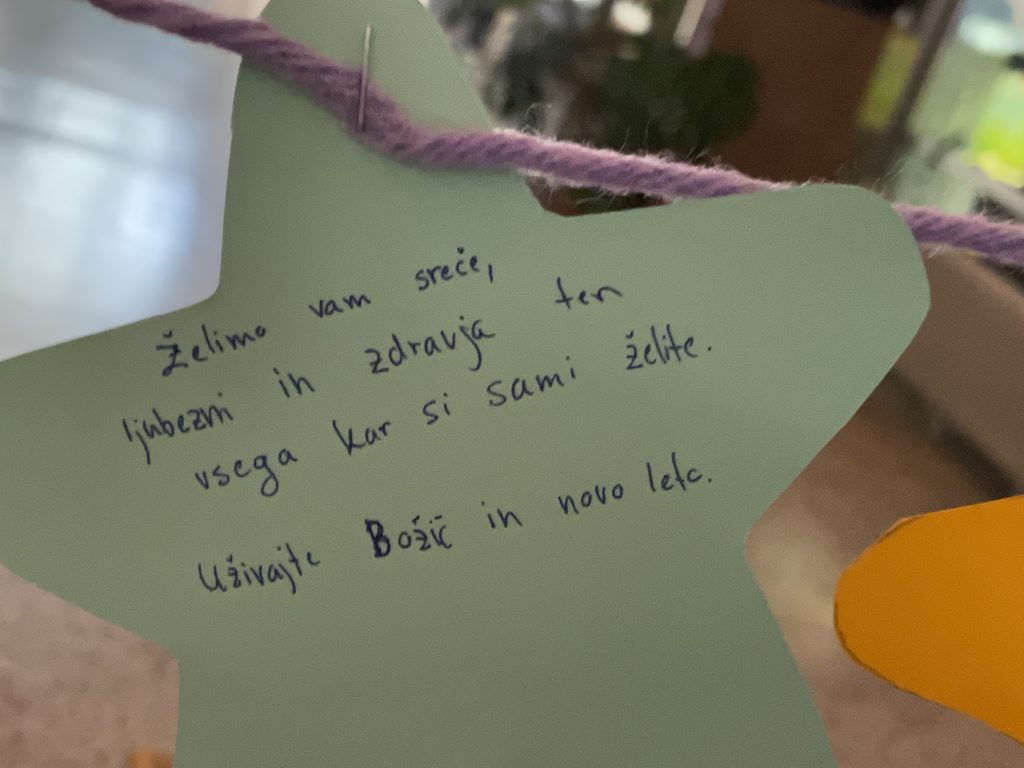 Želimo vam sreče,
ljubezni in zdravja ter
vsega kar si sami želite.
Uživajte Božič in novo leto.